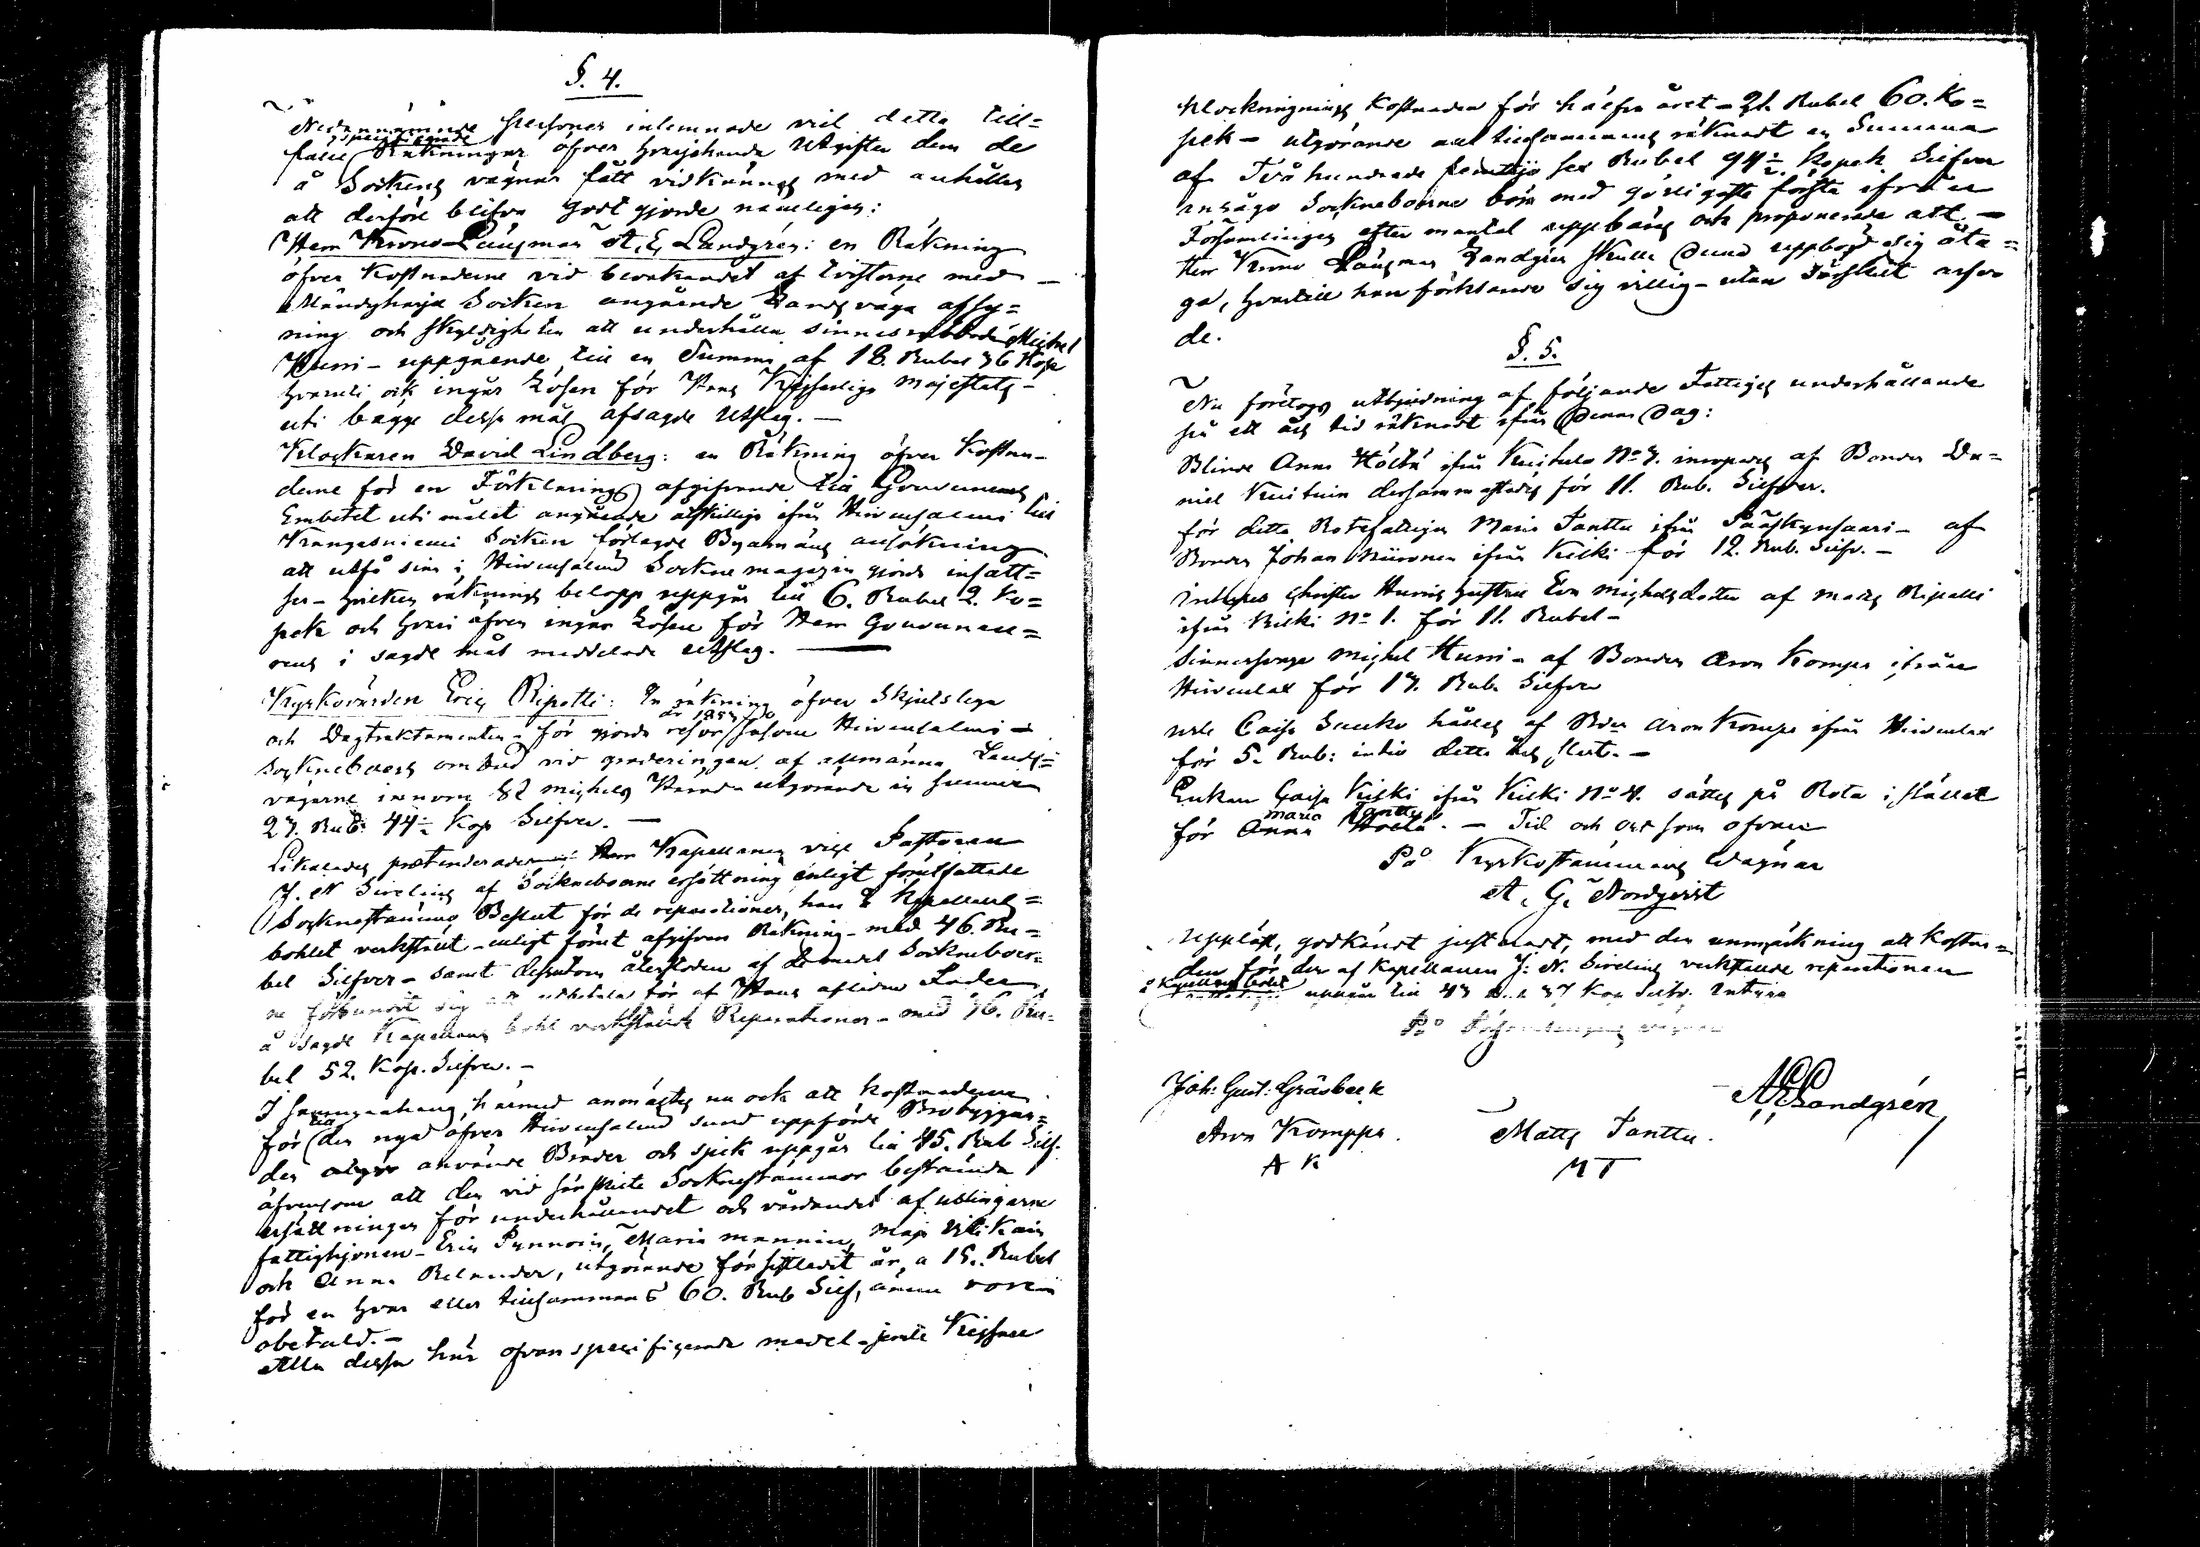 §. 4.
Nedannämnde personer inlemnade vid detta till-
fälle specificerade Räkningar öfver hvarjehanda Utgifter dem de
å Sockens vägnar fått vidkännas med anhållan
att derföre blifva godtgjorde nämeligen:
Herr Krono Länsman A. E. Landgrén: en Räkning
öfver Kostnaderne vid bevakandet af tvisterne med
Mändyharju Socken angående Landsväga afsy=
ning och skyldigheten att underhålla sinnessvaga Michel
Hurri - uppgående till en Summa af 18. Rubel 36 Kop
hvaruti ock ingår Lösen för Hans Kejserliga Majestäts -
uti bägge dessa mål afsagde Utslag. -
Klockaren David Lindberg: en Räkning öfver Kostna-
derne för en Förklarings afgifvande till Gouvernements
Embetet uti målet angående åtskillige ifrån Hirvensalmi till
Kangasniemi Socken förlagde Byamäns ansökning
att utfå sine i Hirvensalmi Sockne magazin gjorde insatt=
ser - hvilken räknings belopp uppgår till 6. Rubel 2. Ko=
pek och hvari äfven ingår Lösen för Herr Gouverneu=
rens i sagde mål meddelade Utslag.
Kyrkovärden Eric Ripatti: En räkning öfver Skjutslega
och Dagtraktamenten - för gjorde resor år 1857 såsom Hirvensalmi -
Socknebors ombud vid graderingen af allmänna Lands=
vägarne innom S:t Michels Härad - utgörande en summa
27. Rub: 44 1/2 Kop Silfver. -
Likaledes prætenderade Herr Kapellanen vice Pastoren
J. N Sireling af Sockneboerne ersättning enligt förutfattade
Socknestämmo Beslut för de reparationer, han å Kapellans=
bohlet verkställt - enligt förut afgifven Räkning - med 46. Ru=
bel Silfver - samt dessutom återstoden af de medel Sockneboer=
ne förbundit sig att utbetala för af Hans aflidne Fader
å Sagde Kapellans bohl verkställde Reparationer - med 36. Ru=
bel 52. Kop. Silfver. -
I sammanhang härmed anmältes nu ock att kostnaderne
för till den nya öfver Hirvensalmi sund uppförde Brobyggna=
den använde Bräder och spik uppgår till 45. Rub Silf.
äfvensom att den vid särskilte Socknestämmor bestämda
ersättningen för underhållandet och vårdandet af uslingarne
fattighjonen - Eric Pynnöin, Maria Manninen, Maja Valikain
och Anna Relander, utgörande för sistledit år, a 15. Rubel
för en hvar eller tillsammans 60. Rub Silf, ännu vore
obetald. -
Alla dessa här ofvan specificerade medel - jemte Kejsare
klockringnings kostnaden för halfva året - 21. Rubel 60. Ko=
pek - utgörande allt tillsammans räknadt en Summa
af Två hundrade femtijo sex Rubel 94 1/2 Kopek Silfver
ansågo Sockneboerne böra med görligaste första ifrån
Församlingen efter mantal uppbäras och proponerade att -
Herr Krono Länsman Landgrén skulle denna uppbörd sig åta=
ga, hvartill han förklarade sig villig - utan
de.
§. 5.
Nu företogs utbjudning af följande Fattiges underhållande
på ett års tid räknadt ifrån denna dag:
Blinde Anna Höltä ifrån Kuitula No 7. inropades af Bonden Da=
niel Kuituin dersammastädes för 11. Rub. Silfver.
för detta Rotefattigen Maria Tanttu ifrån Pääskynsaari - af
Bonden Johan Niironen ifrån Kilki för 12. Rub. Silfv. -
Inhyses Christer Hurris hustru Eva Michelsdotter af Matts Ripatti
ifrån Kilki No 1. för 11. Rubel -
Sinnessvaga Michel Hurri - af Bonden Aron Komppa ifrån
Hirvenlax för 17. Rub. Silfver
usle Caisa Saukko hålles af Bon Aron Komppa ifrån Hirvenlax
för 5. Rub: intill detta års slut. -
Enkan Caisa Kilki ifrån Kilki No 4. sättes på Rota i stället
för Anna Höltä Maria Tanttu. - Tid och ort som ofvan
På Kyrkostämmans Vägnar
A. G. Nordqvist
Uppläst, godkändt justeradt, med den anmärkning att kostna=
den för den af Kapellanen J. N. Sireling verkställde reparationen
å Kapellans bohlet uppgår till 43 Rub 37 Kop Silfv. Intyga
På Församlingens vägnar
Joh: Gust: Gråsbeck
AELandgrén
Aron Komppa.
Matts Tanttu.
A K
M T